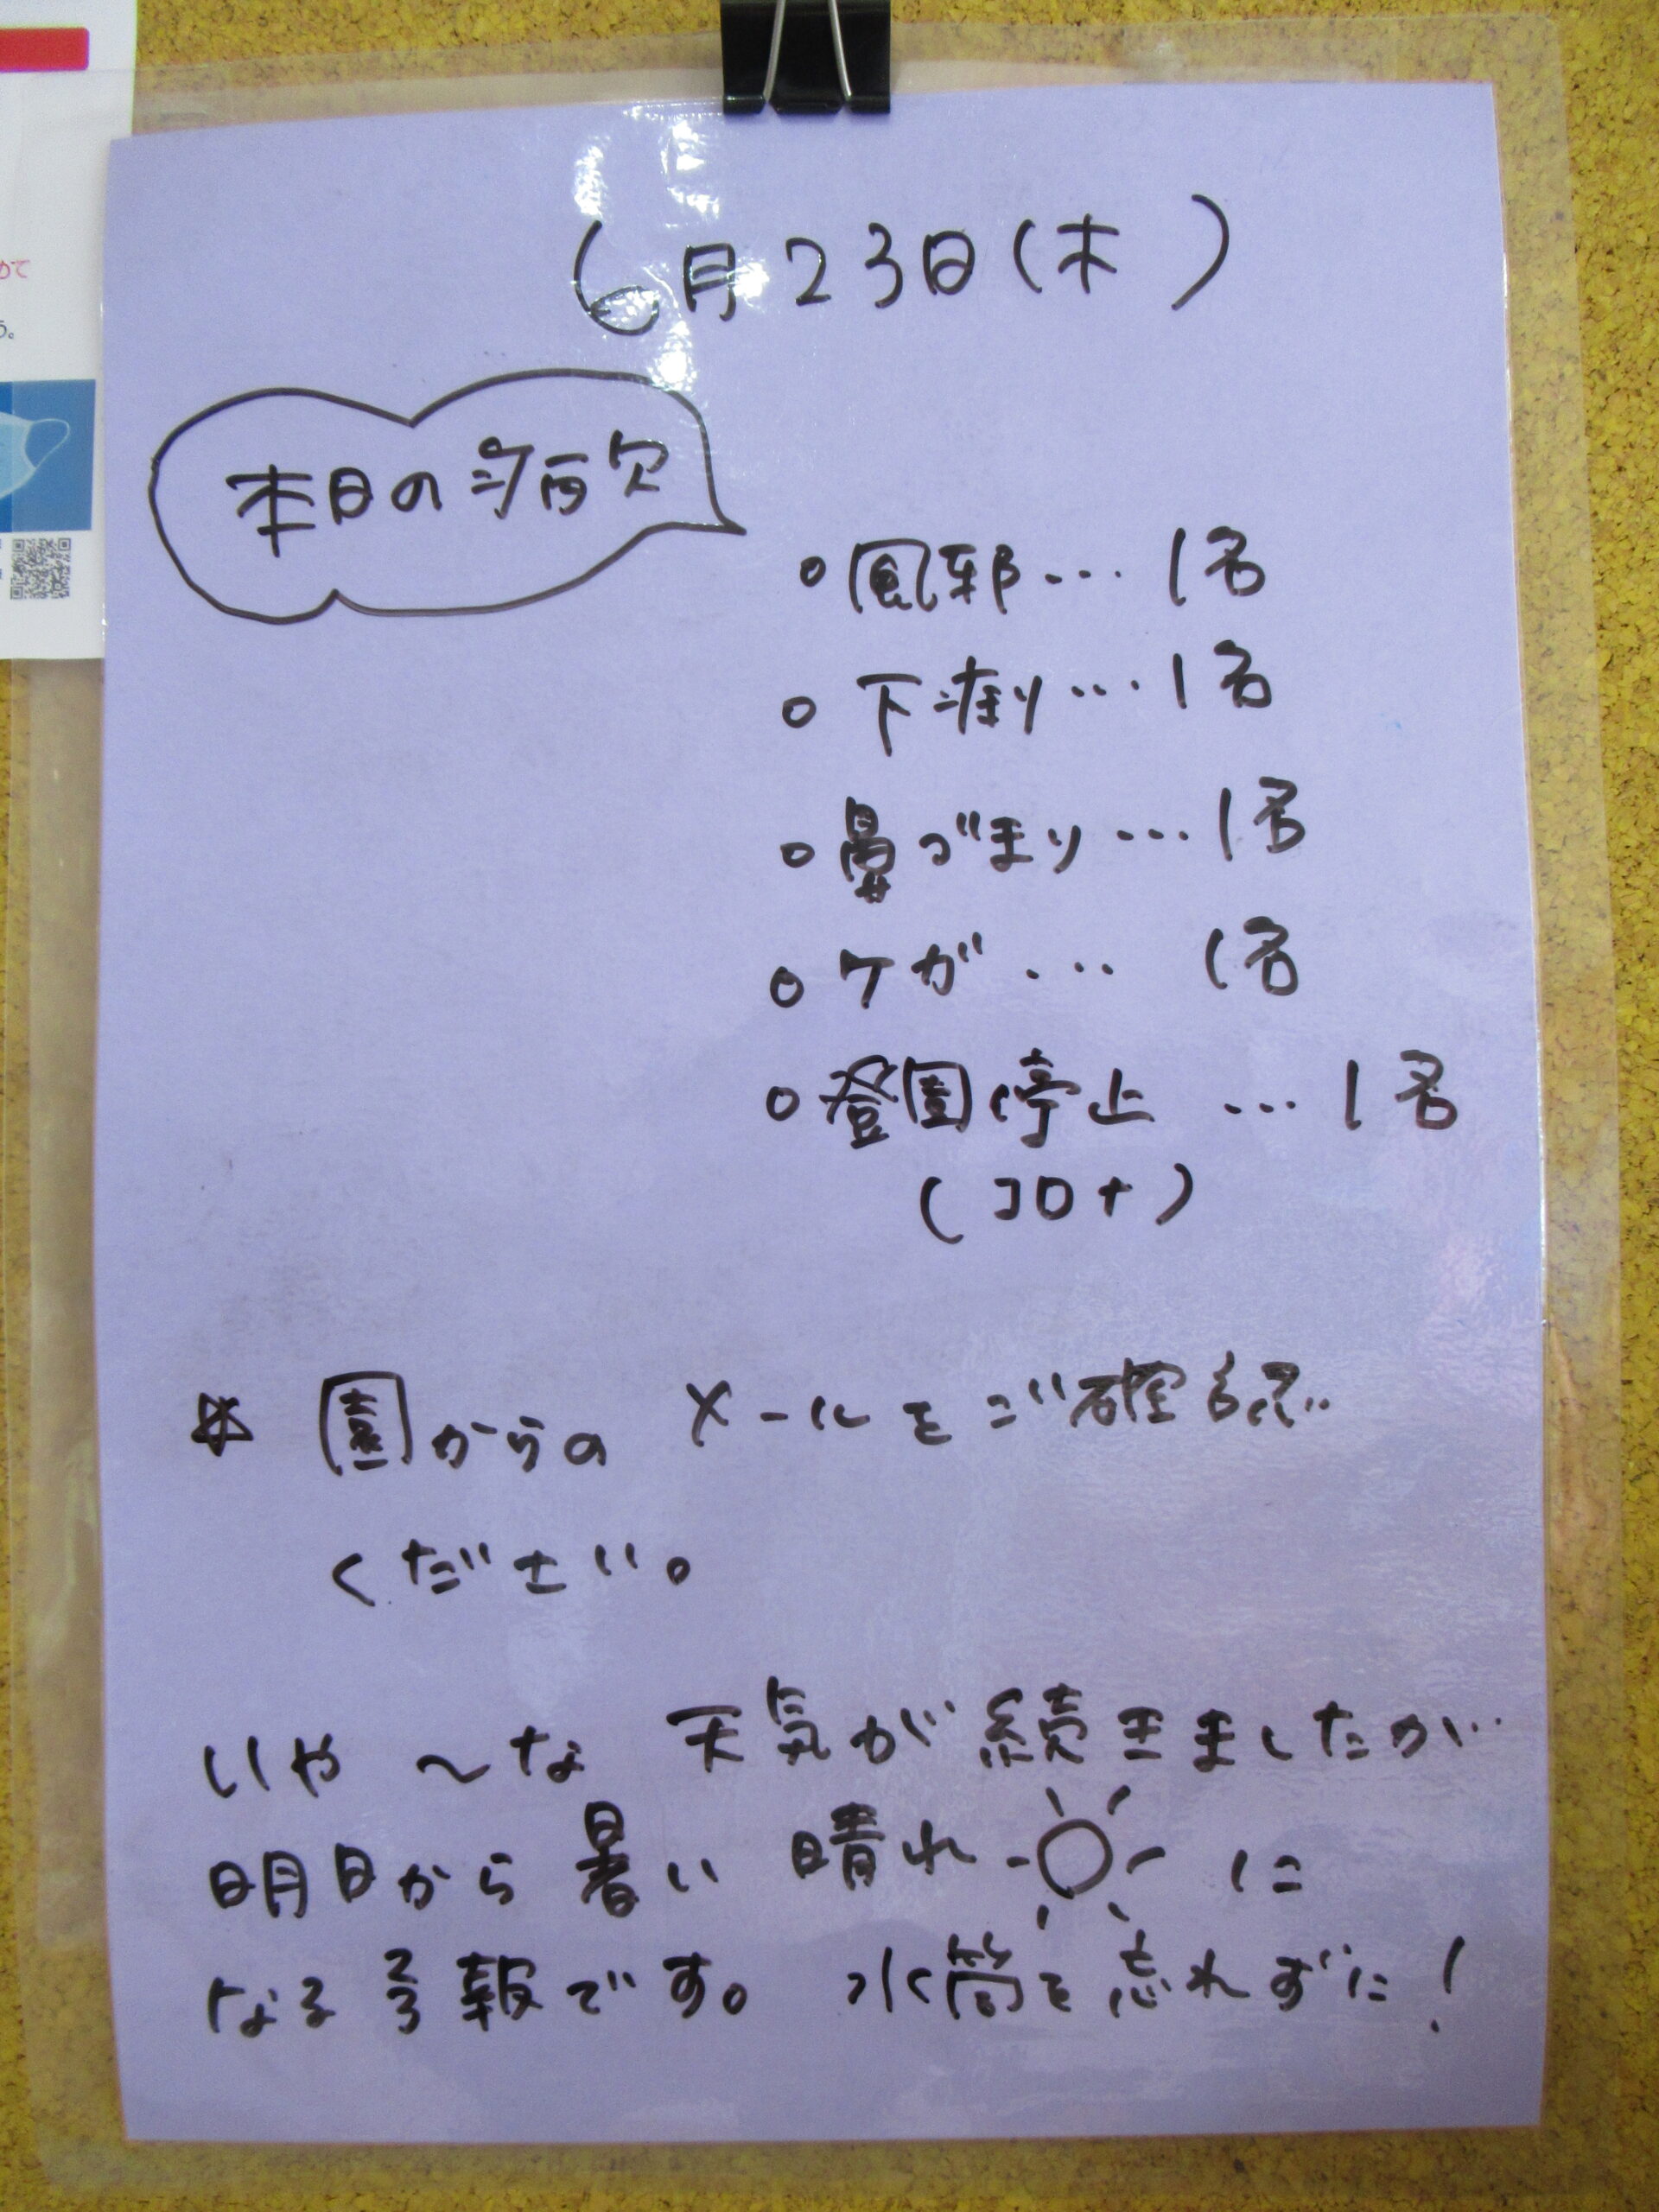 めて
う。
6月23日(木)
本日の病欠
○風邪… 1名
○下痢… 1名
○鼻づまり… 1名
○ケガ… 1名
○登園停止 … 1名
(コロナ)
☆ 園からの メールをご確認
ください。
いや～な 天気が続きましたが
明日から暑い 晴れ☀に
なる予報です。 水筒を忘れずに!